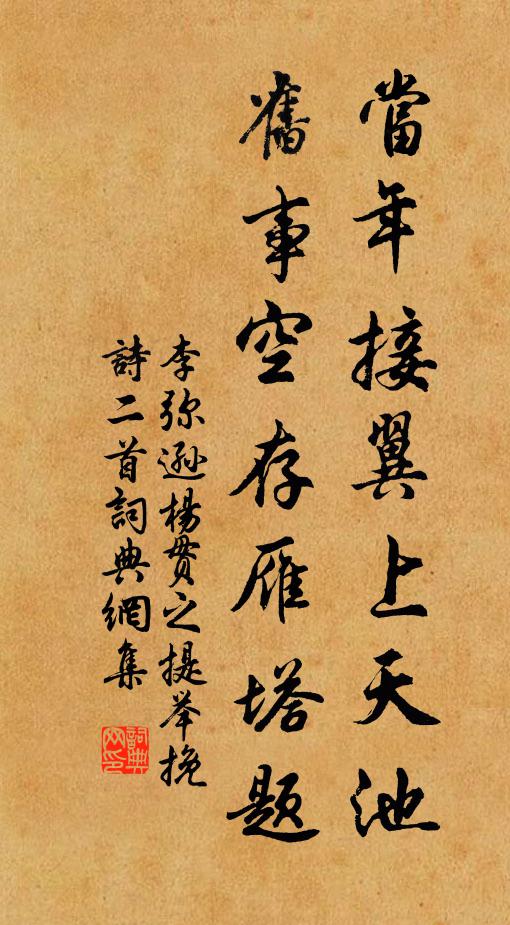 當年接翼上天池
舊事空存雁塔题
李弥遜楊贯之提举挽
詩二首詞典網集
詞典
网印